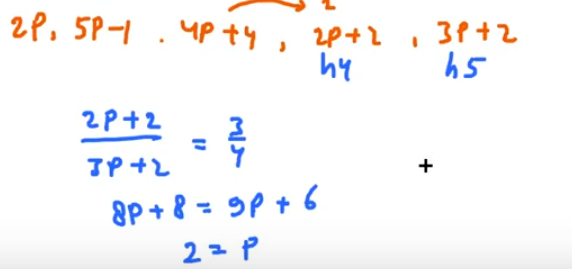 2
2P, 5P-1 . 4P+4, 2P+2, 3P+2
h4 h5
2P+2 / 3P+2 = 3/4
8P+8 = 9P+6
2 = P
+